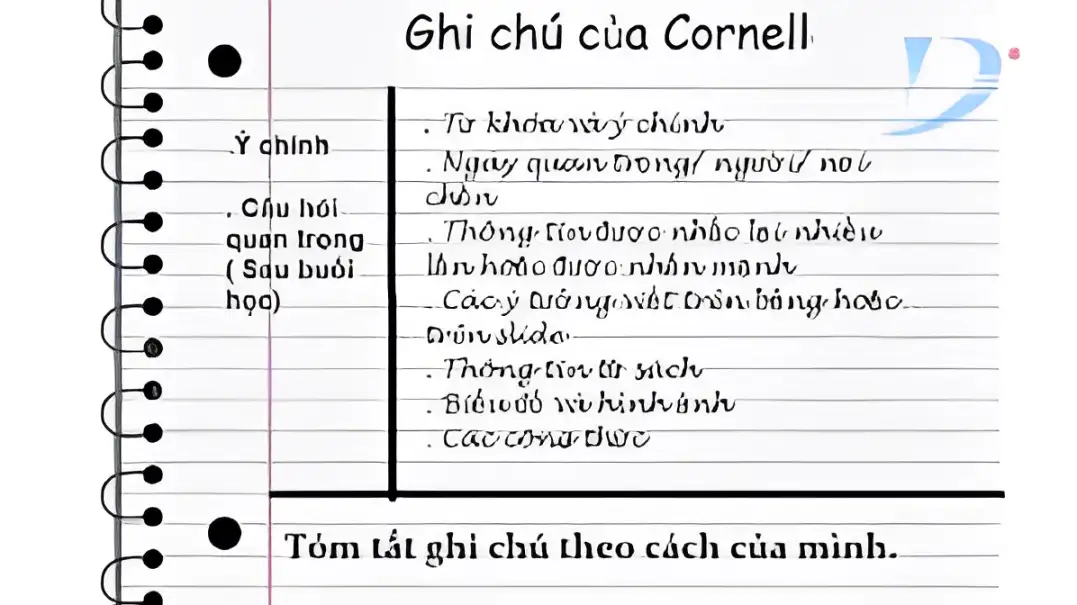 Ghi chú của Cornell
. Ý chính
. Câu hỏi
quan trọng
( Sau buổi
học)
. Từ khóa và ý chính
. Ngày quan trọng/ người/ nơi
chốn
. Thông tin được nhắc lại nhiều
lần hoặc được nhấn mạnh
. Các ý tưởng viết trên bảng hoặc
trên slide
. Thông tin từ sách
. Biểu đồ và hình ảnh
. Các công thức
Tóm tắt ghi chú theo cách của mình.